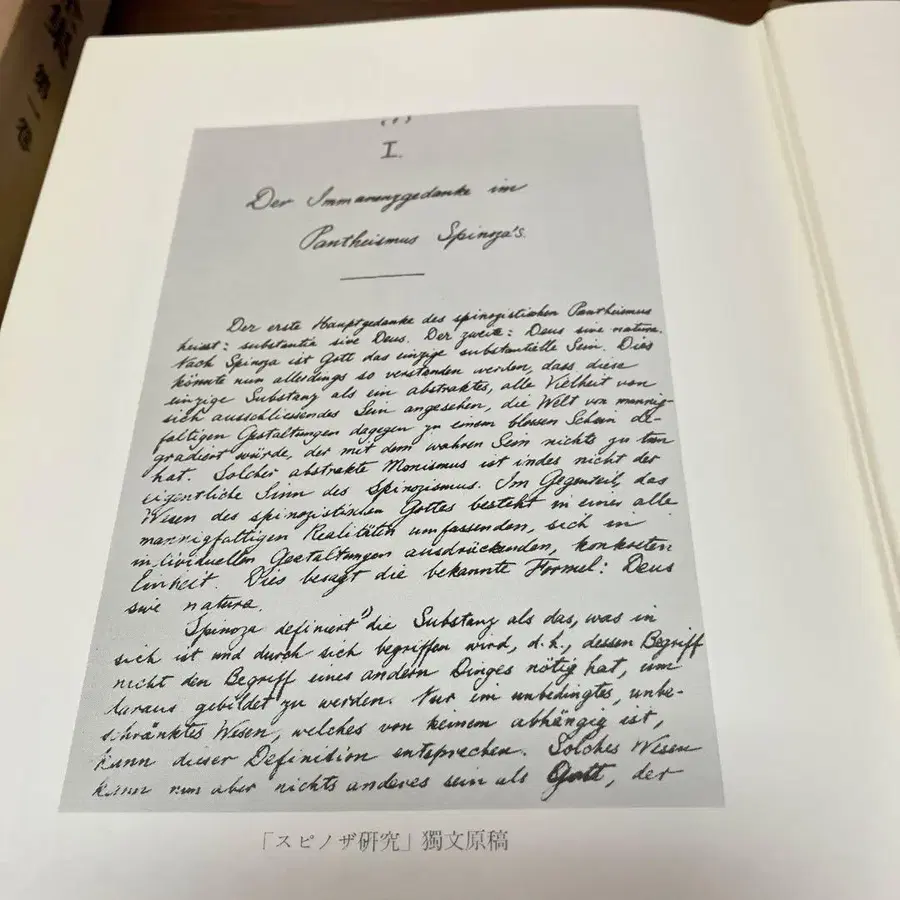 (1)
I.
Der Immanenzgedanke im
Pantheismus Spinoza's.
Der erste Hauptgedanke des spinozistischen Pantheismus
heisst: substantia sive Deus. Der zweite: Deus sive natura.
Nach Spinoza ist Gott das einzige substantielle Sein. Dies
könnte nun allerdings so verstanden werden, dass diese
einzige Substanz als ein abstraktes, alle Vielheit von
sich ausschliessendes Sein angesehen, die Welt von mannig-
faltigen Gestaltungen dagegen zu einem blossen Schein de-
gradiert würde, der mit dem wahren Sein nichts zu tun
hat. Solcher abstrakte Monismus ist indes nicht der
eigentliche Sinn des Spinozismus. Im Gegenteil, das
Wesen des spinozistischen Gottes besteht in einer alle
mannigfaltigen Realitäten umfassenden, sich in
individuellen Gestaltungen ausdrückenden, konkreten
Einheit. Dies besagt die bekannte Formel: Deus
sive natura.
Spinoza definiert¹⁾ die Substanz als das, was in
sich ist und durch sich begriffen wird, d.h., dessen Begriff
nicht den Begriff eines andern Dinges nötig hat, um
daraus gebildet zu werden. Nur ein unbedingtes, unbe-
schränktes Wesen, welches von keinem abhängig ist,
kann dieser Definition entsprechen. Solches Wesen
kann nun aber nichts anderes sein als Gott, der
「スピノザ研究」獨文原稿